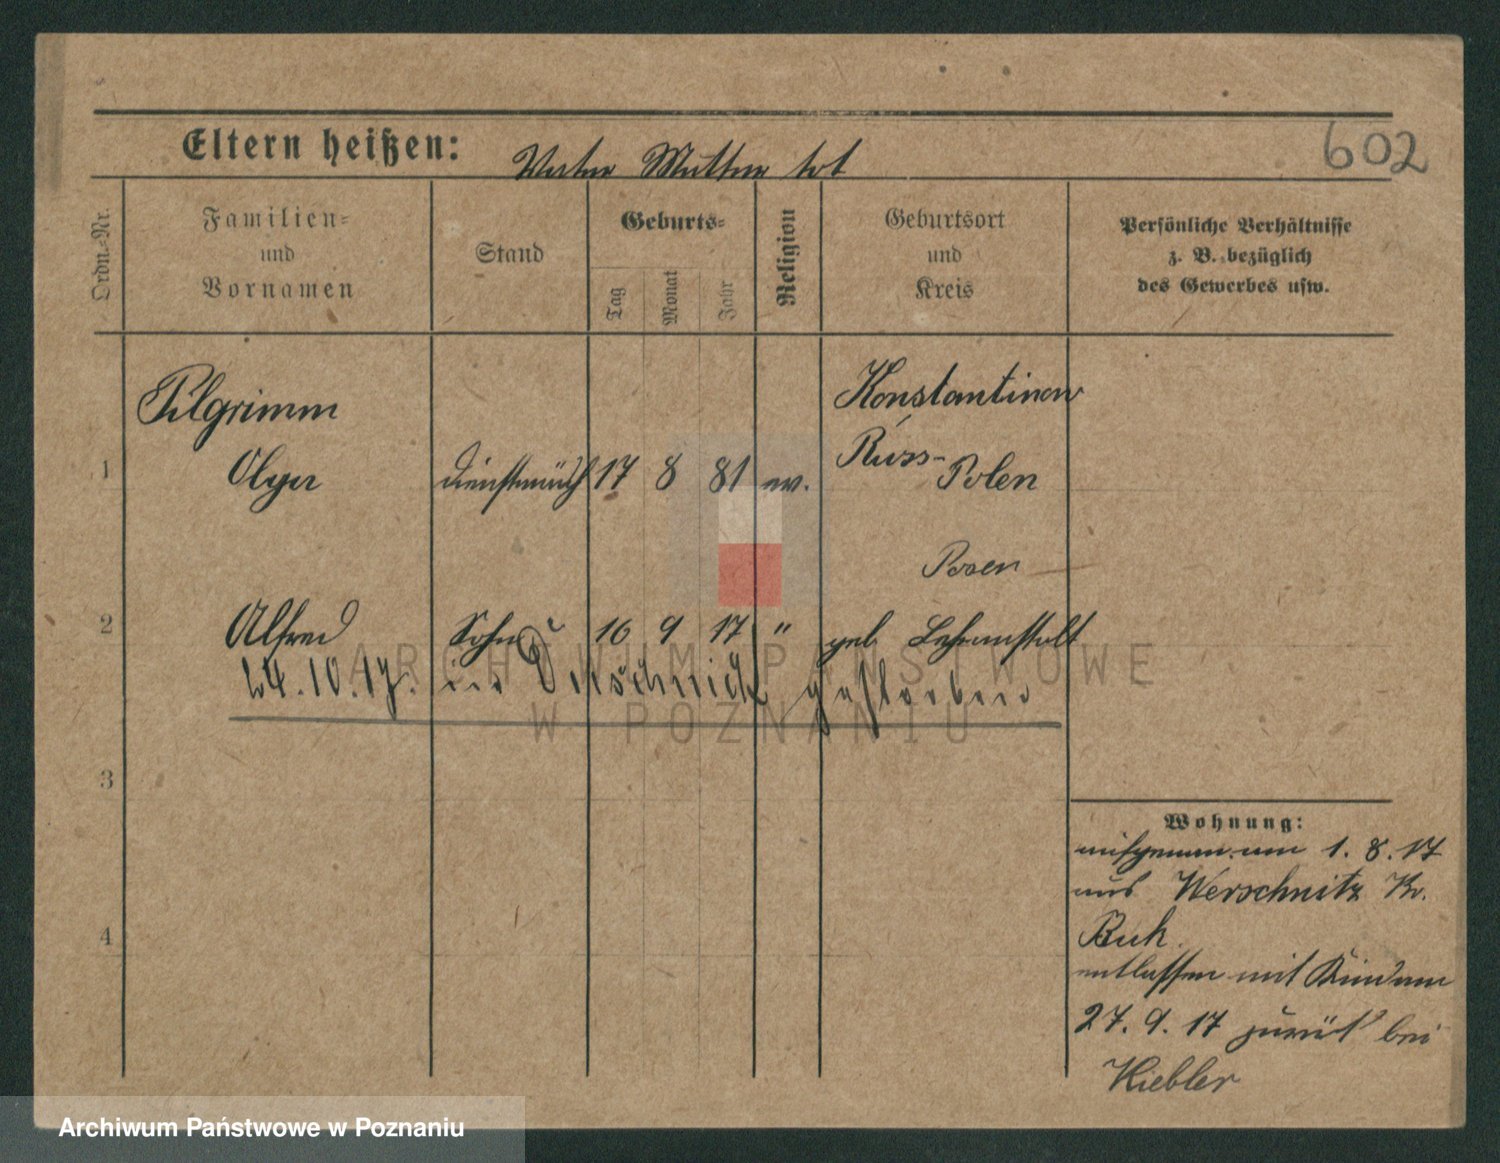 Eltern heißen: Vater Mutter tot
602
Ordn.-Nr.
Familien-
und
Vornamen
Stand
Geburts-
Tag
Monat
Jahr
Religion
Geburtsort
und
Kreis
Persönliche Verhältnisse
z. B. bezüglich
des Gewerbes usw.
Pilgrimm
Konstantinow
Russ-
1 Olga dienstmäd 17 8 81 ev. Polen
Posen
2 Alfred Sohn 16 9 17 " geb Lehranstalt
24.10.17. in gestorben
3
4
Wohnung:
aufgenom. am 1. 8. 17
aus Werschnitz Kr.
Buk.
entlassen mit Kind am
27. 9. 17 zurück bei
Hiebler
ARCHIWUM PAŃSTWOWE
W POZNANIU
Archiwum Państwowe w Poznaniu